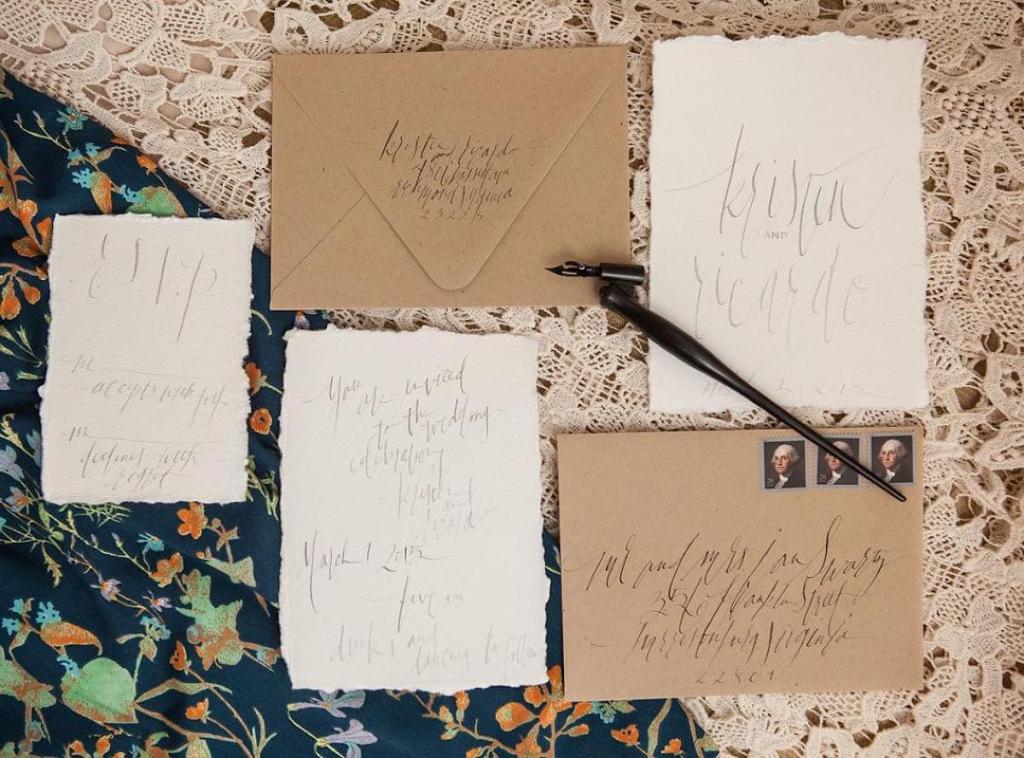 kristen
and ricardo
Richmond Virginia
23225
kristen
AND
ricardo
March 1 2015
r.s.v.p.
m
accepts with joy
m
declines with
regret
you
are invited
to the wedding
celebrating
kristen
and
ricardo
March 1 2015
five pm
drinks and
dancing to follow
Mr and Mrs Ian Swartz
Street
Harrisonburg Virginia
22801